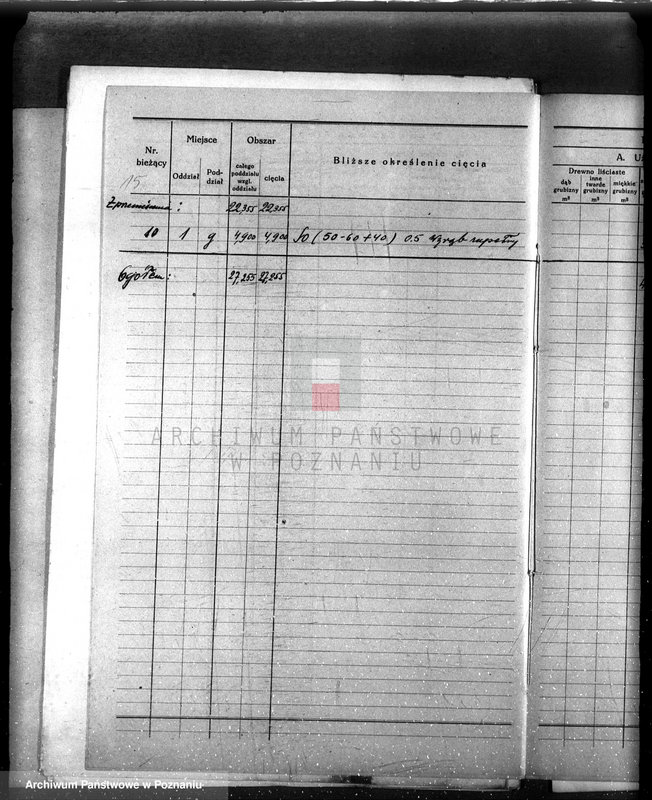 Nr. bieżący | Miejsce | Obszar | Bliższe określenie cięcia
Oddział | Pod-dział | całego poddziału wzgl. oddziału | cięcia
15
Z przeniesienia : 22,355 22,355
10 1 g 4,900 4,900 So (50-60+40) 0.5 Zrąb zupełny
Ogółem: 27,255 27,255
A. Uż
Drewno liściaste
dąb grubizny m³ | inne twarde grubizny m³ | miękkie grubizny m³
ARCHIWUM PAŃSTWOWE
W POZNANIU
Archiwum Państwowe w Poznaniu